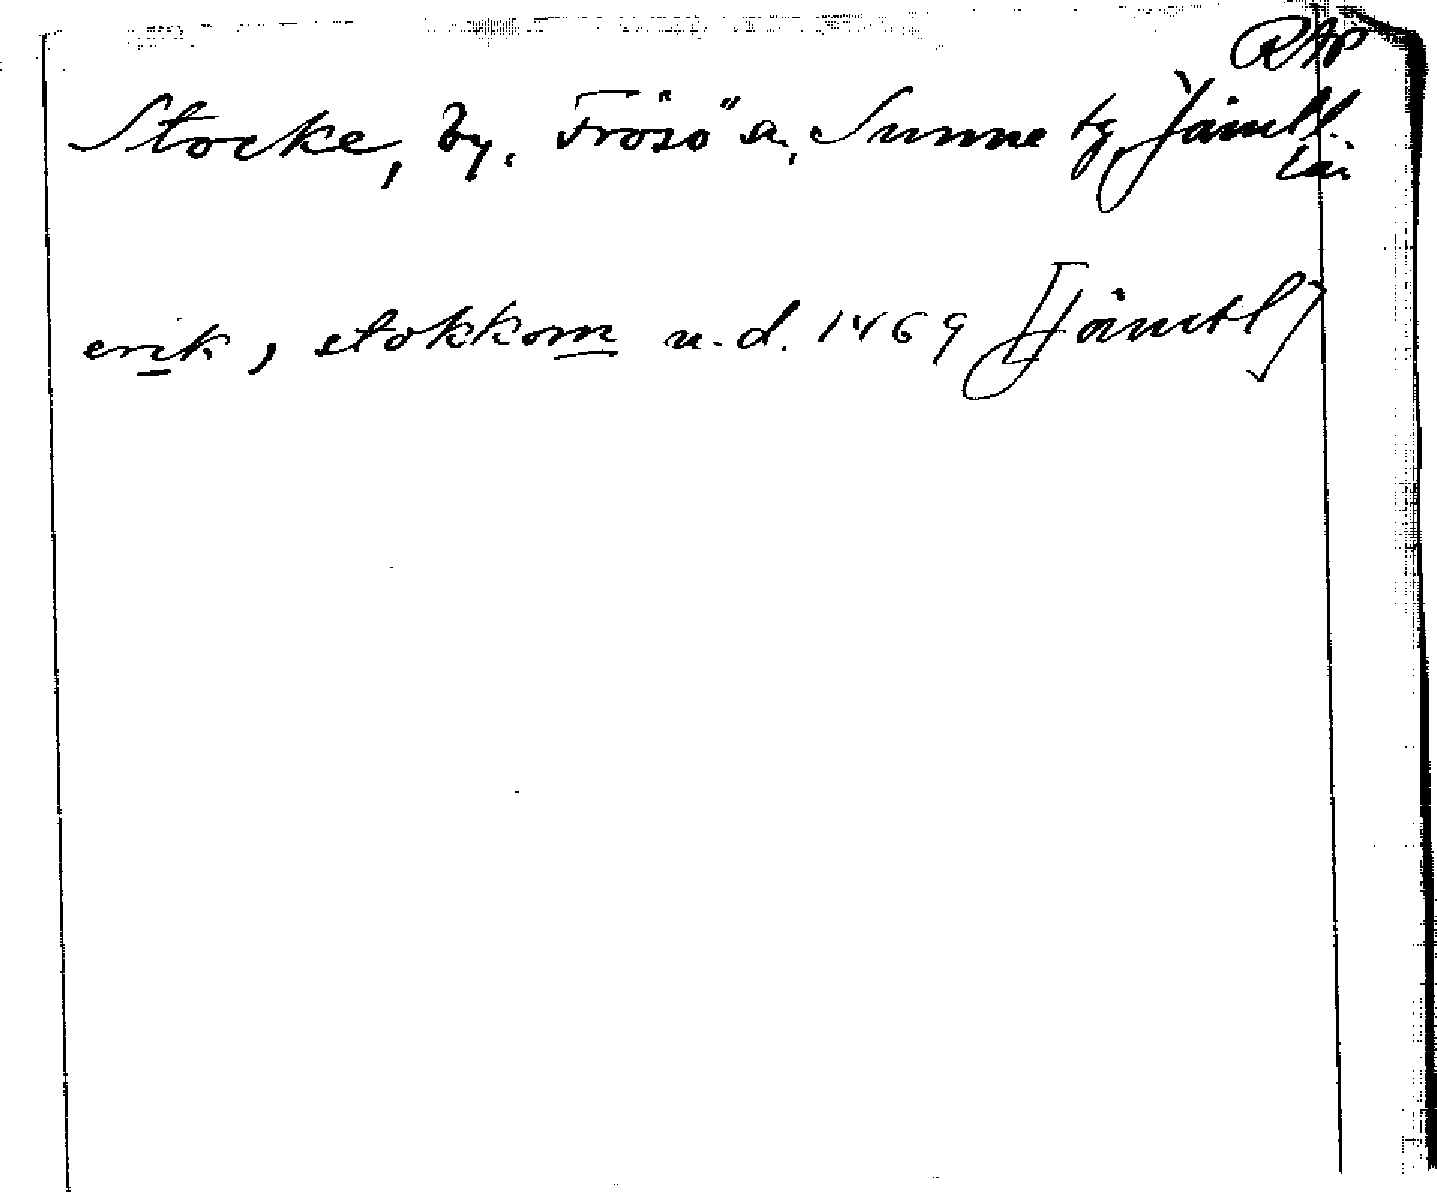 RAP
Stocke, by. Frösö sn, Sunne tg, Jämtl.
län
erik, i stokkom u.d. 1469 [Jämtl]